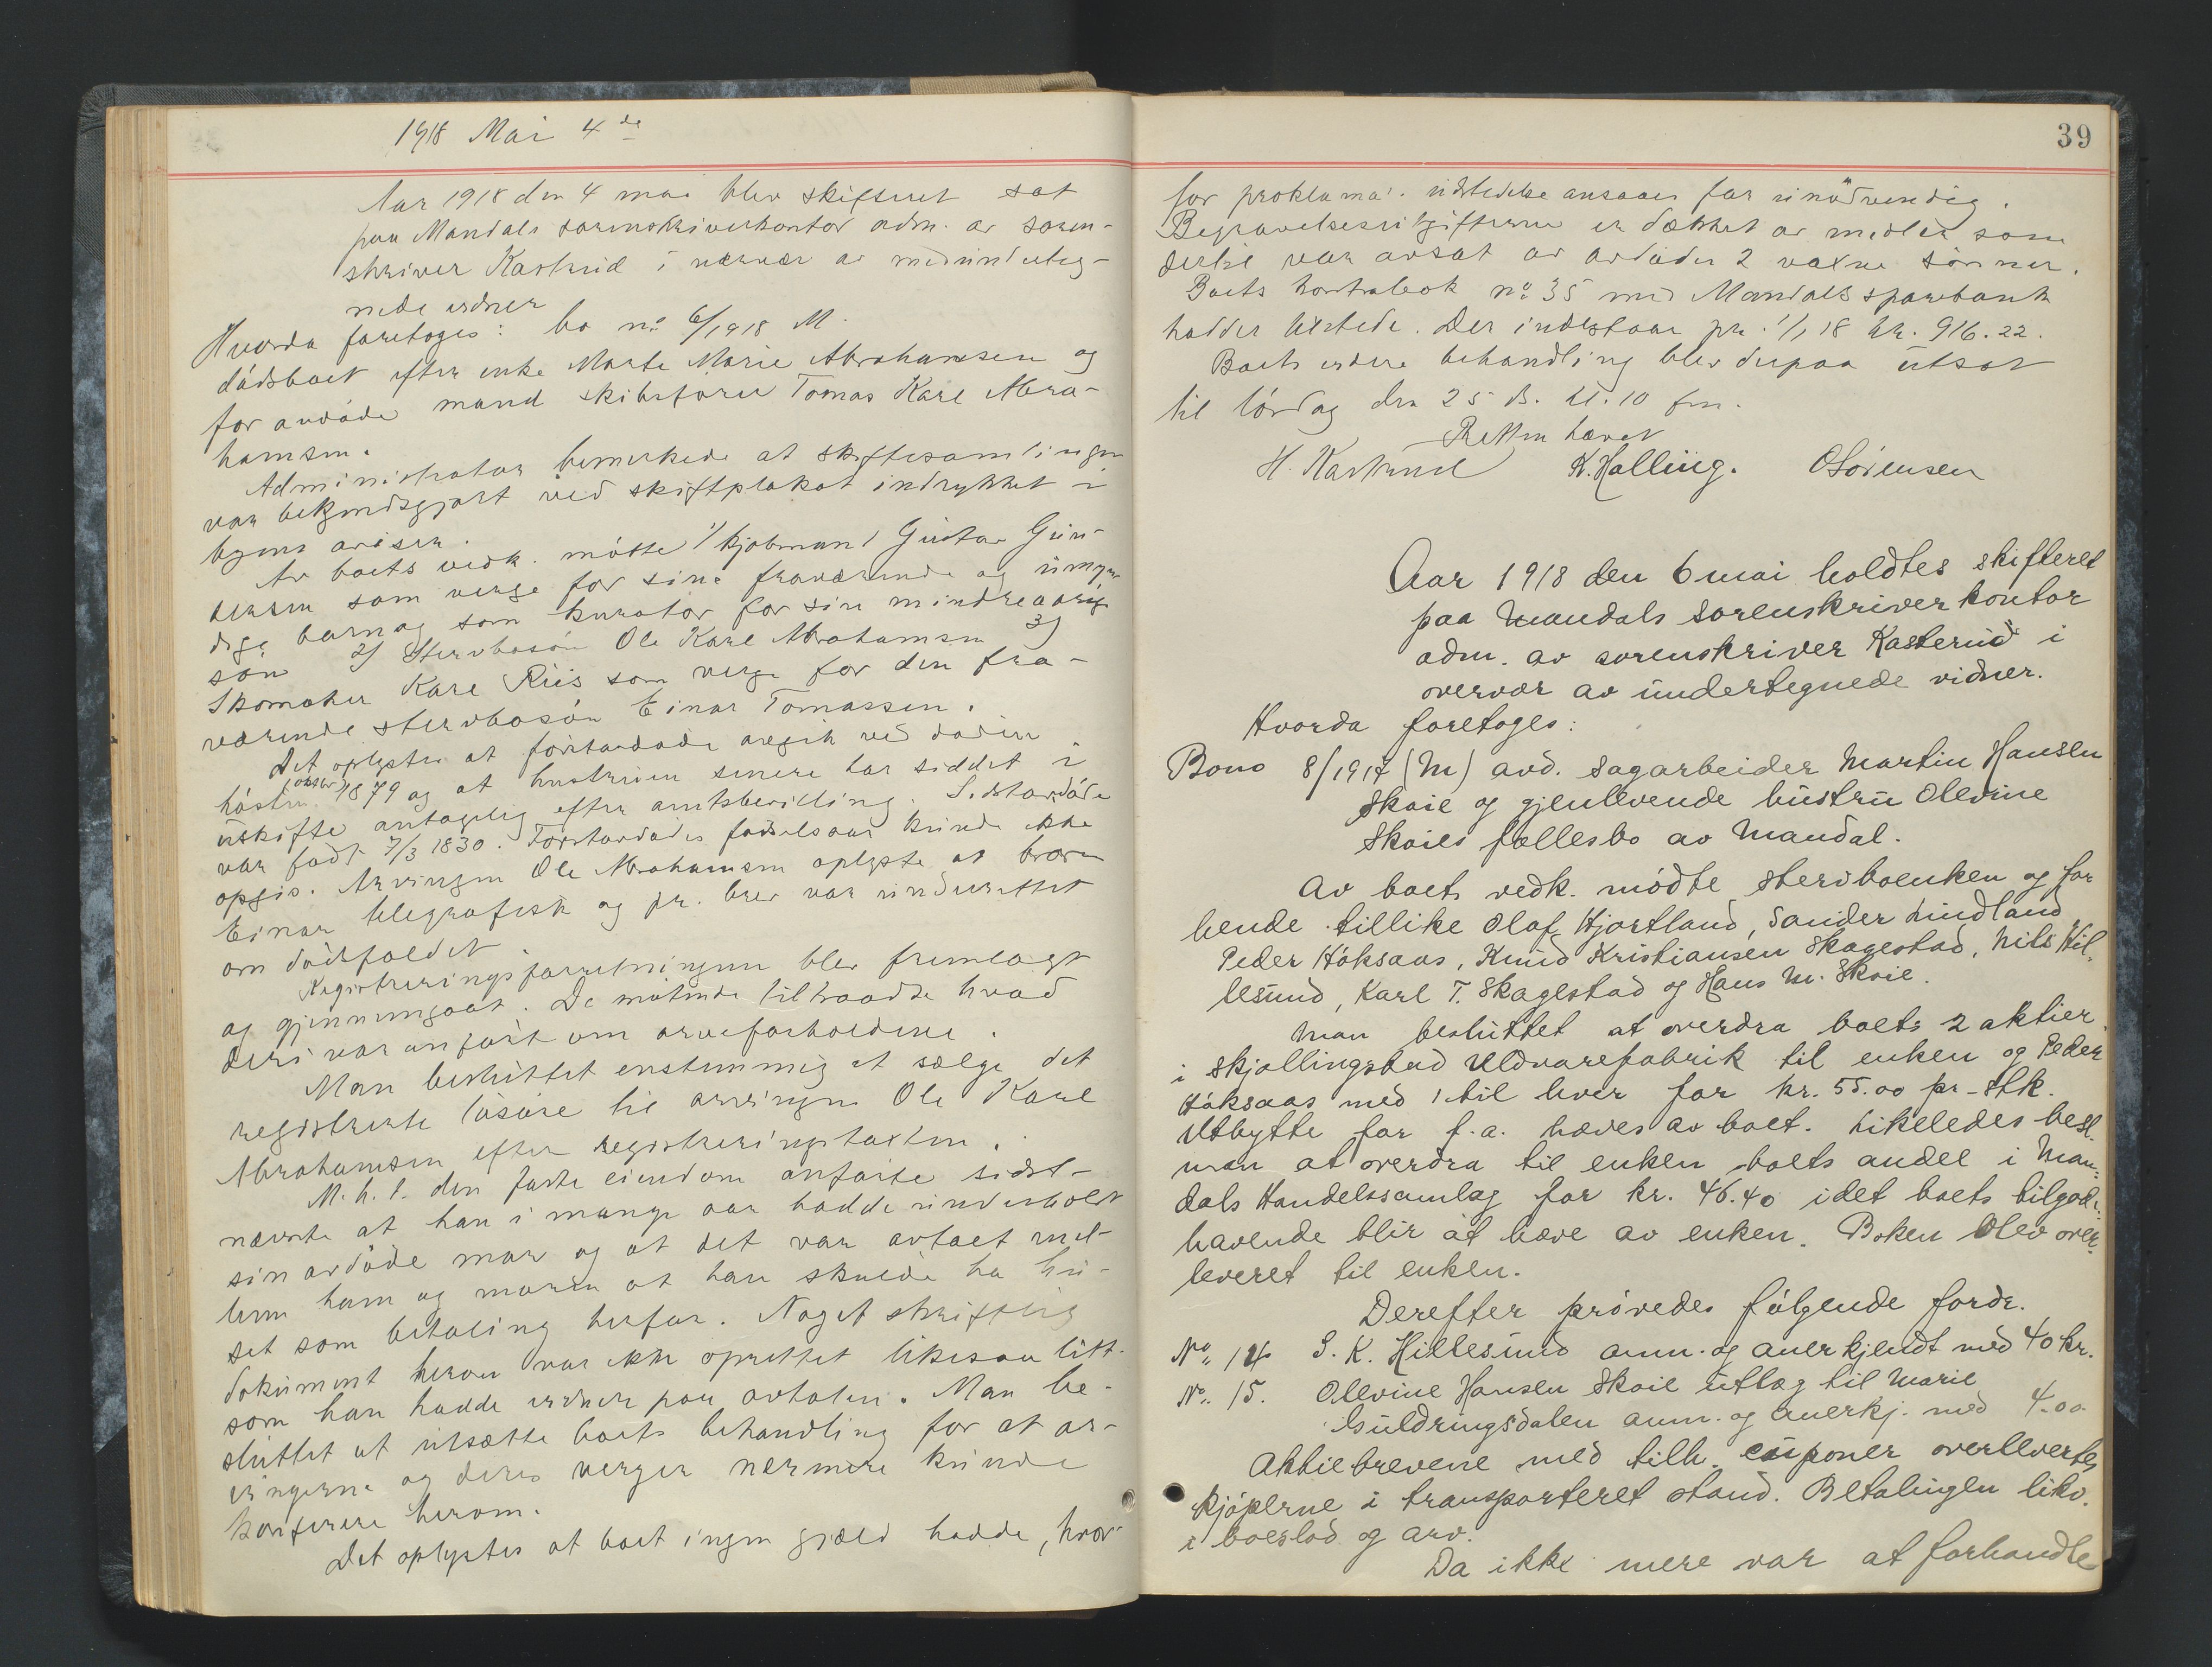 1918 Mai 4de
Aar 1918 den 4 mai blev skifteret sat
paa Mandals sorenskriverkontor adm. av soren-
skriver Kasterud i nærvær av medunderteg-
nede vidner
Hvorda foretoges: bo no 6/1918 M.
dödsboet efter enke Marte Marie Abrahamsen og
før avdöde mand skibsförer Tomas Karl Abra-
hamsen.
Administrator bemerkede at skiftesamlingen
var bekjendtgjort ved skifteplakat indrykket i
byens aviser.
Av boets vedk. mötte 1/ kjöbmand Gustav Gun-
dersen som verge for sine fraværende og umyn-
dige barn og som kurator for sin mindreaarige
sön 2/ Stervbosön Ole Karl Abrahamsen 3/
Skomaker Karl Riis som verge for den fra-
værende stervbosön Einar Tomassen.
Det oplystes at förstavdöde avgik ved döden
hösten (oktbr) 1879 og at hustruen senere har siddet i
uskifte antagelig efter amtsbevilling. Sidstavdöde
var födt 7/3 1830. Förstavdödes födselsaar kunde ikke
opgis. Arvingen Ole Abrahamsen oplyste at broren
Einar telegrafisk og pr. brev var underrettet
om dödsfaldet.
Registreringsforretningen blev fremlagt
og gjennemgaat. De mötende tiltraadte hvad
deri var anfört om arveforholdene.
Man besluttet enstemmig at sælge det
registrerte lösöre til arvingen Ole Karl
Abrahamsen efter registreringstaxten.
M.h.t. den faste eiendom anförte sidst-
nævnte at han i mange aar hadde underholdt
sin avdöde mor og at det var avtalt mel-
lem ham og moren at han skulde ha hu-
set som betaling herfor. Noget skriftlig
dokument herom var ikke oprettet likesaa litt
som han hadde vidner paa avtalen. Man be-
sluttet at utsætte boets behandling for at ar-
vingerne og deres verger nærmere kunde
konferere herom.
Det oplystes at boet ingen gjæld hadde, hvor-
39
for proklama utstedelse ansaaes for unödvendig.
Begravelsesutgifterne er dækket av midler som
dertil var avsat av avdödes 2 voxne sönner.
Boets kontrabok no 35 med Mandals sparebank
hadde tilstede. Der indestaar pr. 1/1 18 kr. 916.22.
Boets videre behandling blev derpaa utsat
til lördag den 25 ds. kl. 10 fm.
Retten hævet
H. Kasterud K. Halling. O Sörensen
Aar 1918 den 6 mai holdtes skifteret
paa Mandals sorenskriverkontor
adm. av sorenskriver Kasterud i
overvær av undertegnede vidner.
Hvorda foretoges:
Bono 8/1917 (M) avd. sagarbeider Martin Hansen
Skoie og gjenlevende hustru Olevine
Skoies fællesbo av Mandal.
Av boets vedk. mödte stervboenken og for
hende tillike Olaf Hjortland, Sander Lindland
Peder Höksaas, Knud Kristiansen Skagestad, Nils Hil-
lesund, Karl T. Skagestad og Hans M. Skoie.
Man besluttet at overdra boets 2 aktier
i Skjollingstad Uldvarefabrik til enken og Peder
Höksaas med 1 til hver for kr. 55.00 pr. stk.
Utbytte for f.a. hæves av boet. Likeledes besl.
man at overdra til enken boets andel i Man-
dals Handelssamlag for kr. 46.40 idet boets tilgode-
havende blir at hæve av enken. Boken blev over-
leveret til enken.
Derefter prövedes fölgende fordr.
No. 14 S. K. Hillesund anm. og anerkjendt med 40 kr.
No. 15. Olevine Hansen Skoie utlæg til Marie
Guldringsdalen anm. og anerkj. med 4.00
Aktiebrevene med tilh. cuponer overlevertes
kjöperne i transporteret stand. Betalingen likv.
i boeslod og arv.
Da ikke mere var at forhandle